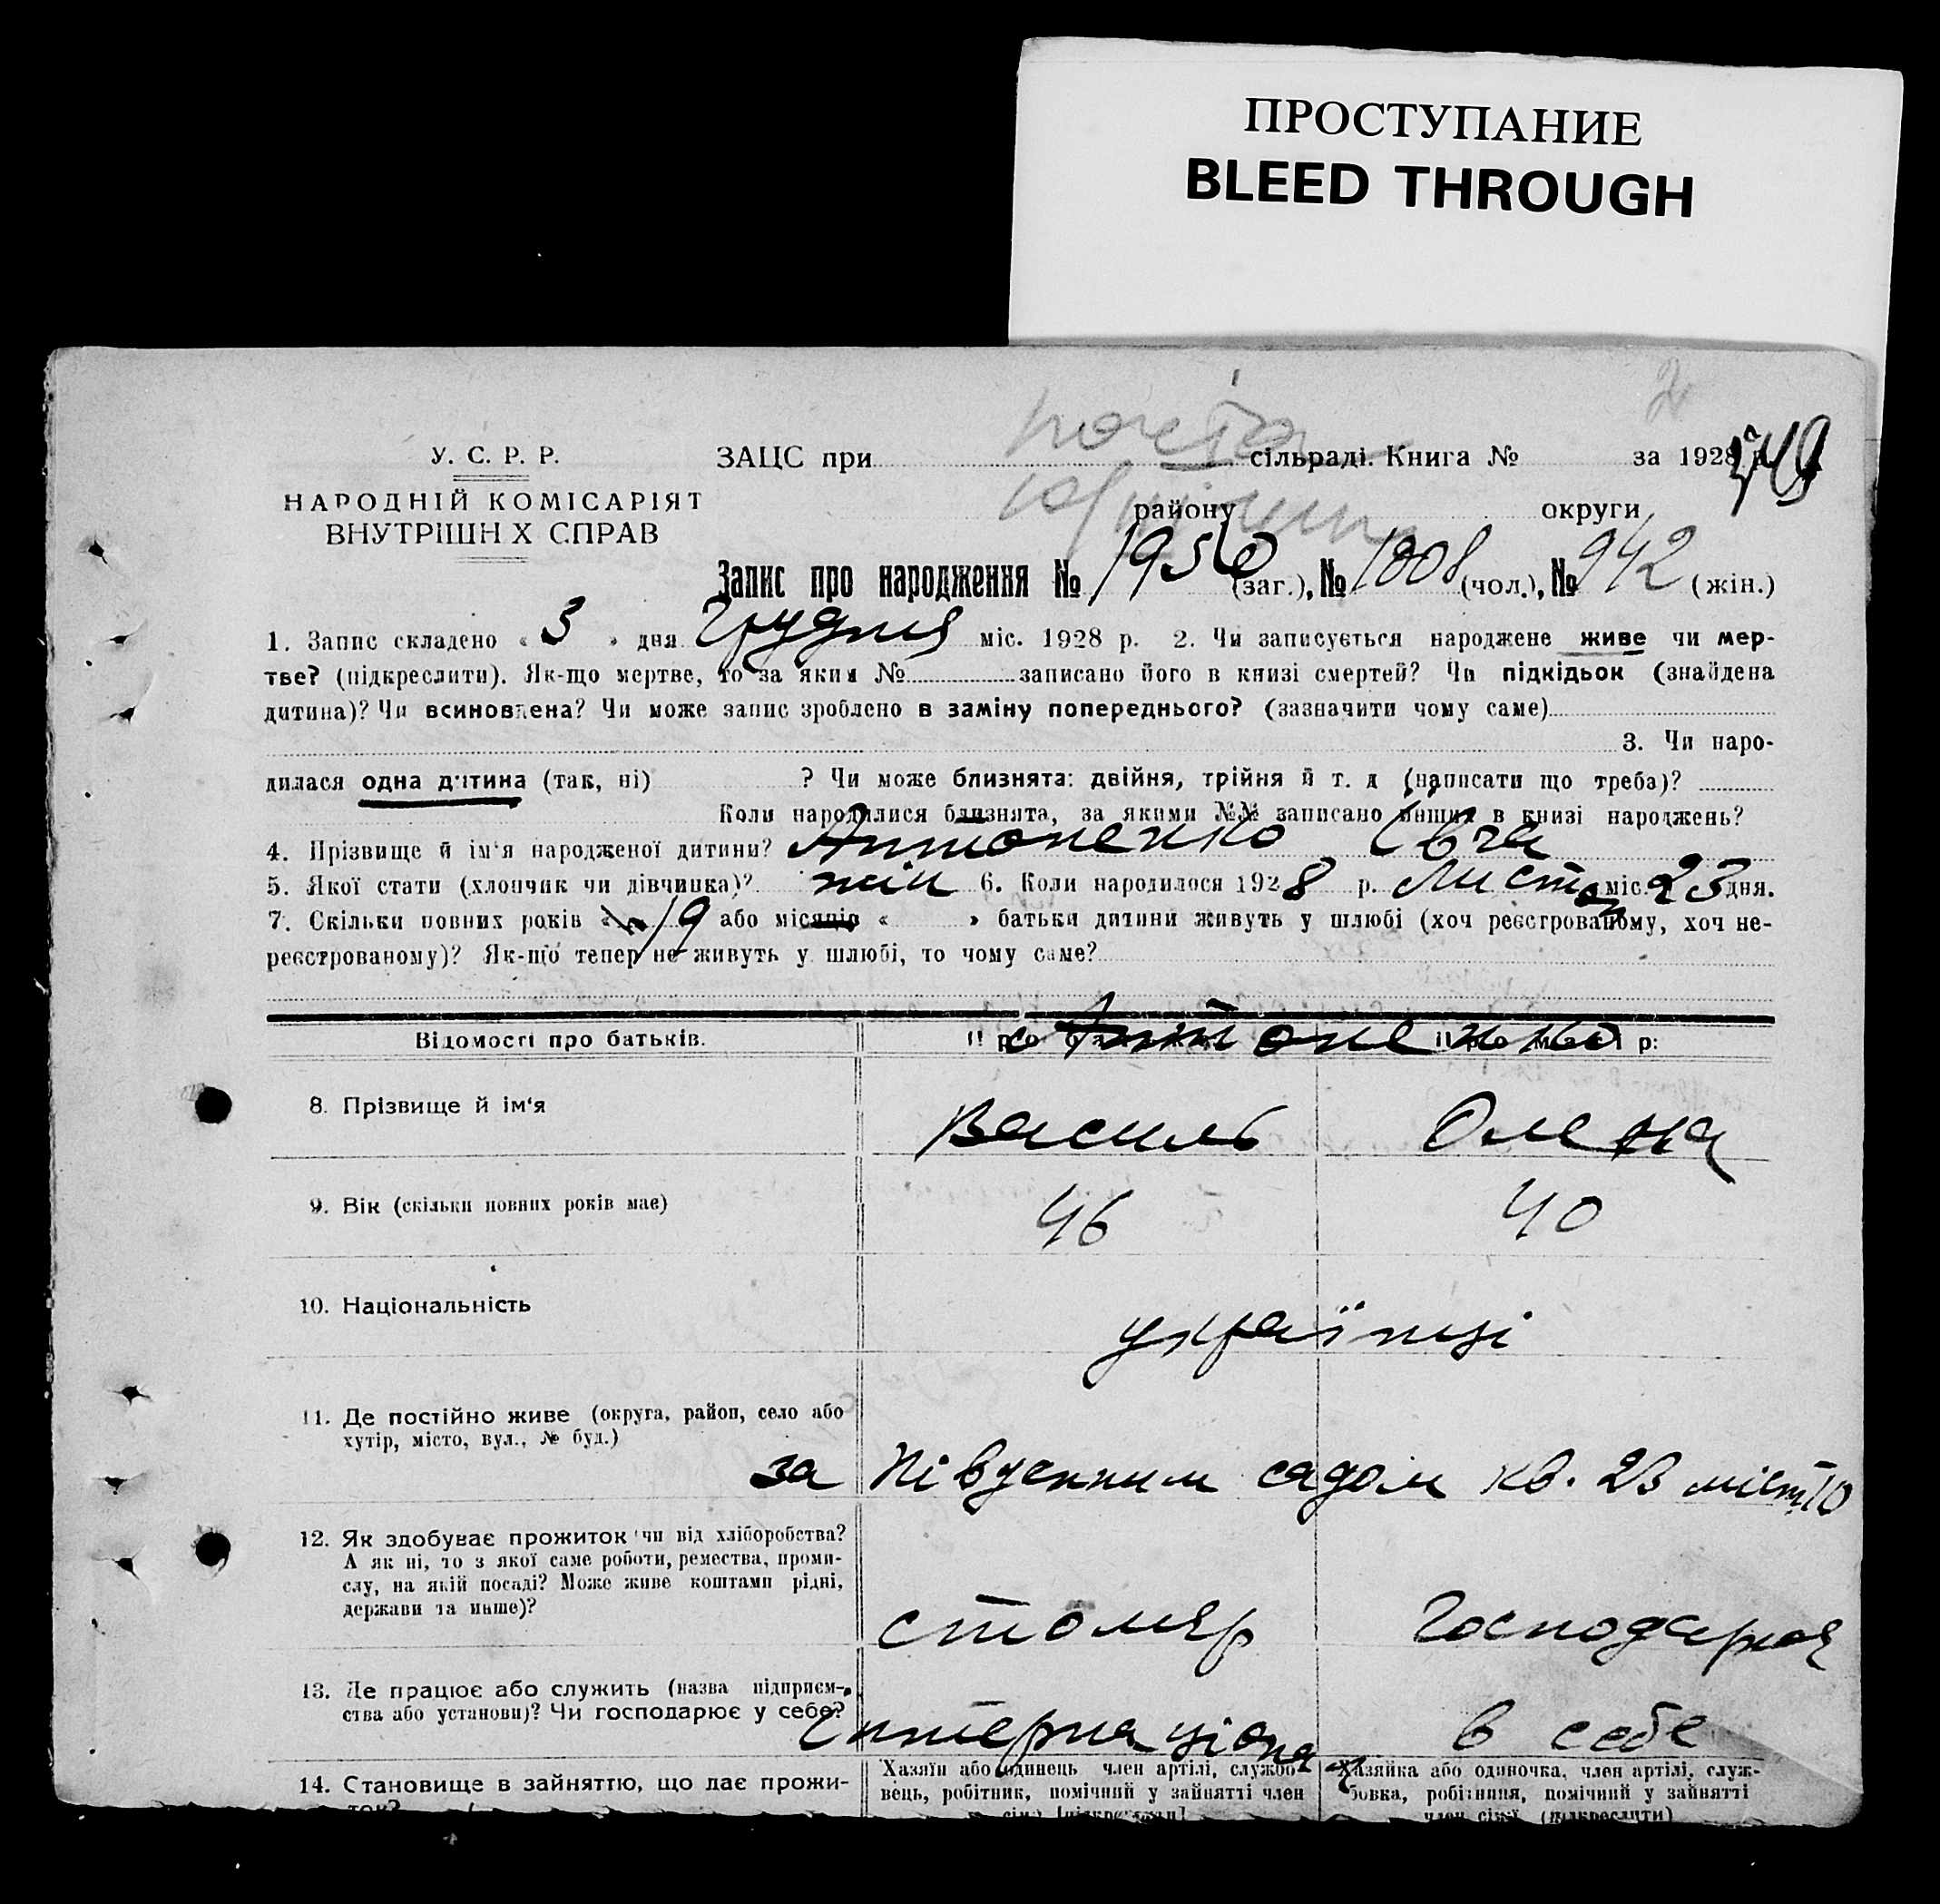 ПРОСТУПАНИЕ
BLEED THROUGH
2
У. С. Р. Р.
ЗАЦС при сільраді. Книга № за 1928 р. 749
НАРОДНІЙ КОМІСАРІЯТ
ВНУТРІШН Х СПРАВ
району округи
Запис про народження № 1950 (заг.), № 1008 (чол.), № 942 (жін.)
1. Запис складено « 3 » дня Грудня міс. 1928 р. 2. Чи записується народжене живе чи мер-
тве? (підкреслити). Як-що мертве, то за яким № записано його в книзі смертей? Чи підкідьок (знайдена
дитина)? Чи всиновлена? Чи може запис зроблено в заміну попереднього? (зазначити чому саме)
3. Чи наро-
дилася одна дитина (так, ні) ? Чи може близнята: двійня, трійня й т. д (написати що треба)?
Коли народилися близнята, за якими №№ записано инших в книзі народжень?
4. Прізвище й ім'я народженої дитини? Антоненко Євга
5. Якої стати (хлопчик чи дівчинка)? жін 6. Коли народилося 1928 р. Листоп міс. 23 дня.
7. Скільки повних років « 19 або місяців « » батьки дитини живуть у шлюбі (хоч реєстрованому, хоч не-
реєстрованому)? Як-що тепер не живуть у шлюбі, то чому саме?
Відомості про батьків. Про батька: Про матір:
Антоненко
8. Прізвище й ім'я Василь Олена
9. Вік (скільки повних років має) 46 40
10. Національність українці
11. Де постійно живе (округа, район, село або
хутір, місто, вул., № буд.)
за Південним садом кв. 23 місто
12. Як здобуває прожиток чи від хліборобства?
А як ні, то з якої саме роботи, ремества, проми-
слу, на якій посаді? Може живе коштами рідні,
держави та инше)?
столяр Господарка
13. Де працює або служить (назва підприєм-
ства або установи)? Чи господарює у себе?
Интернаціонал в себе
14. Становище в зайняттю, що дає прожи-
ток?
Хазяїн або одинець член артілі, службо-
вець, робітник, помічний у зайнятті член
сім'ї [підкреслити]
Хазяйка або одиночка, член артілі, служ-
бовка, робітниця, помічний у зайнятті
член сім'ї (підкреслити)